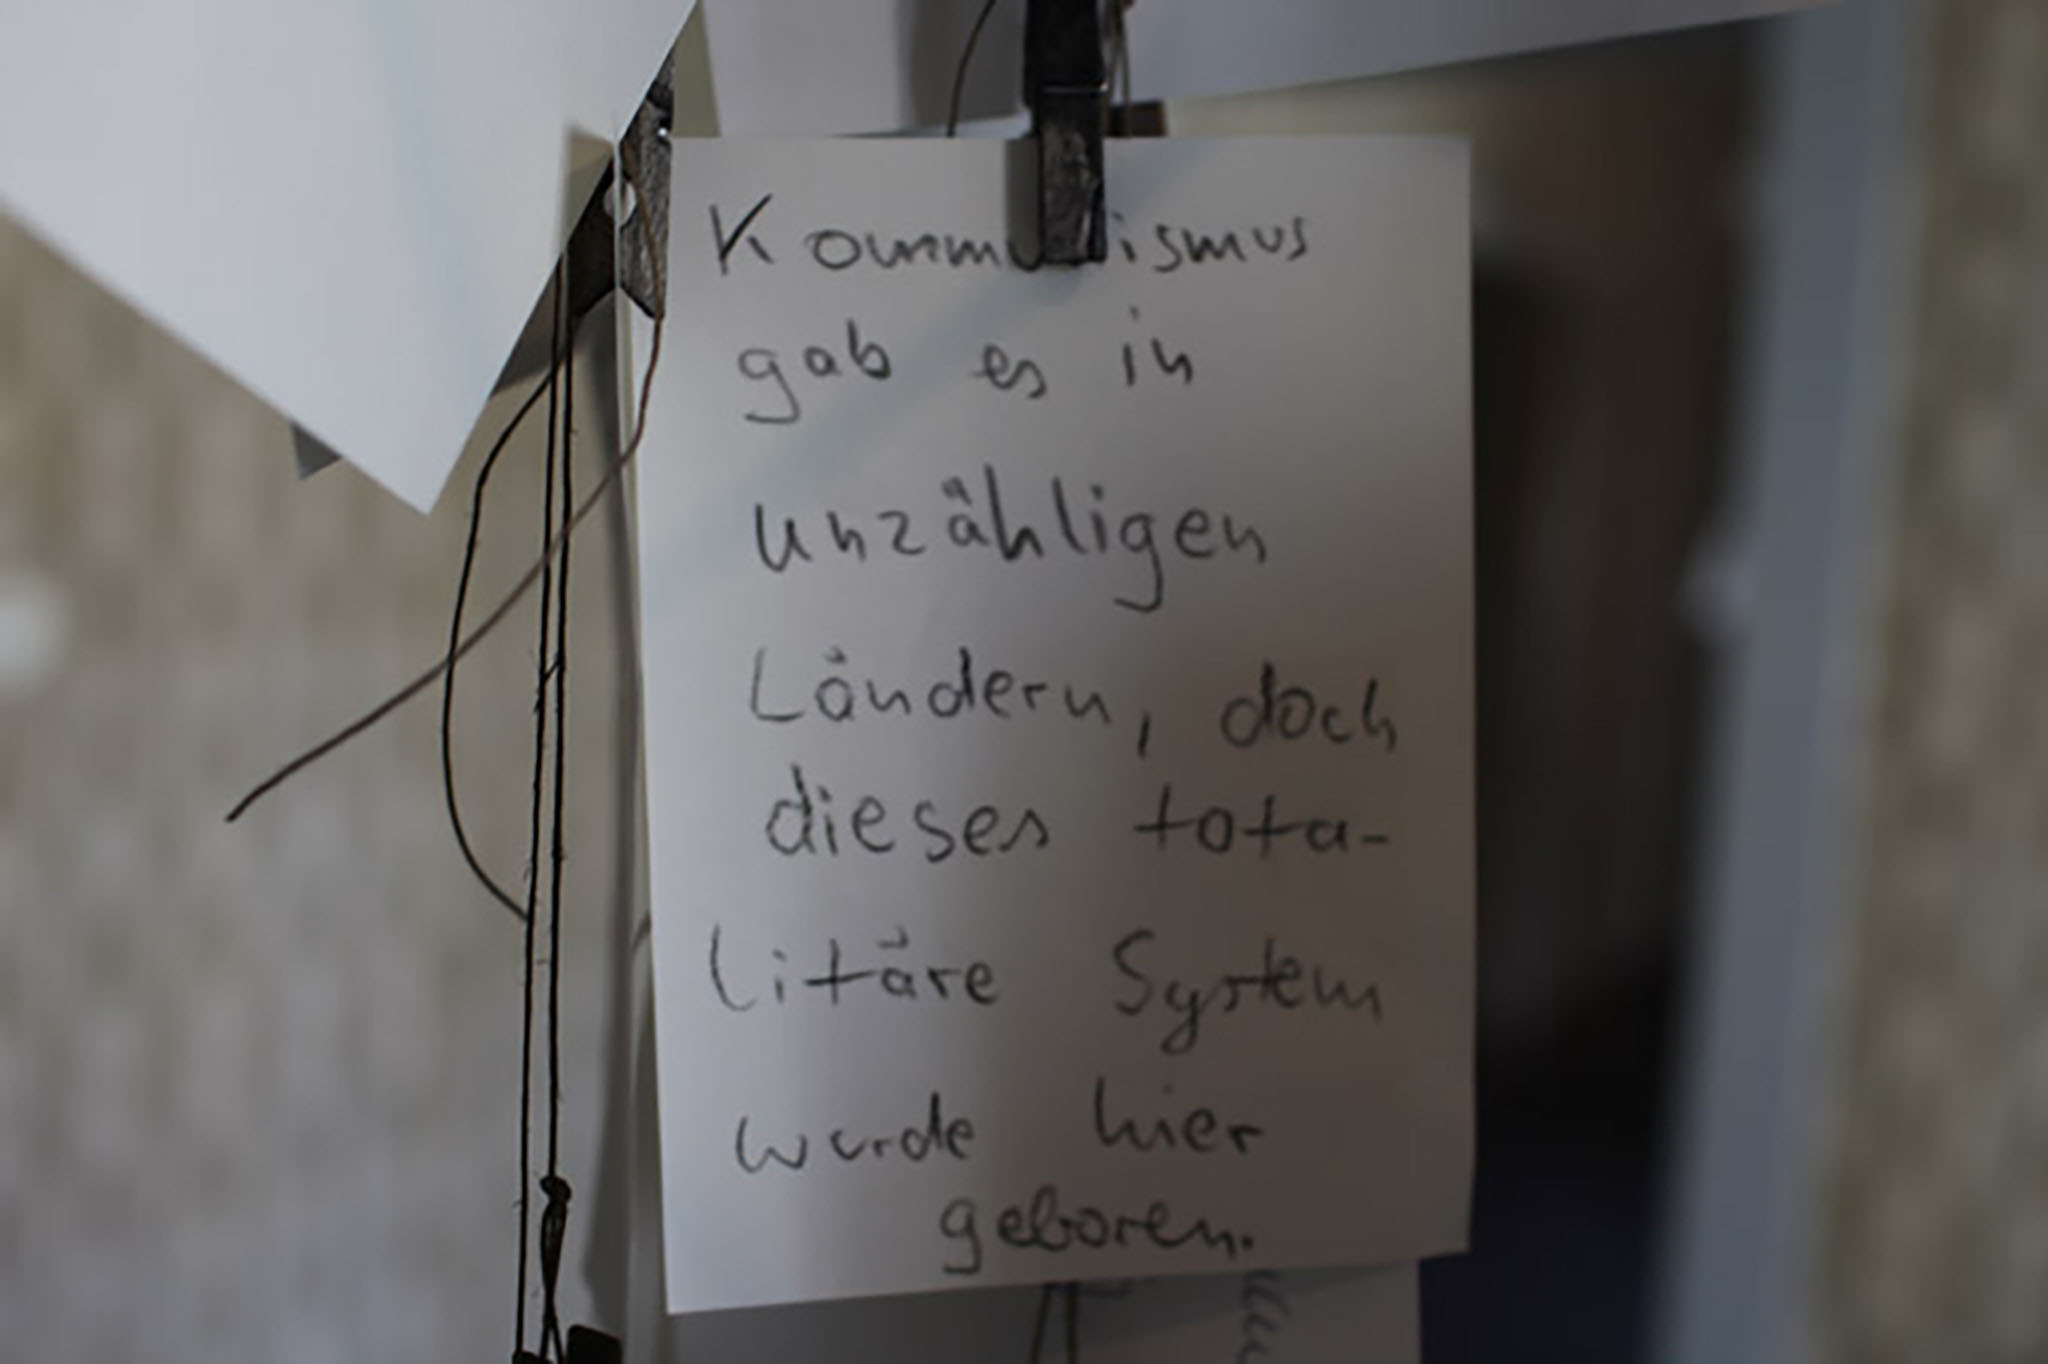 Kommunismus
gab es in
unzähligen
Ländern, doch
dieses tota-
litäre System
wurde hier
geboren.